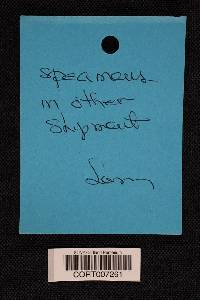 specimens
in other
shipment
CORT007261